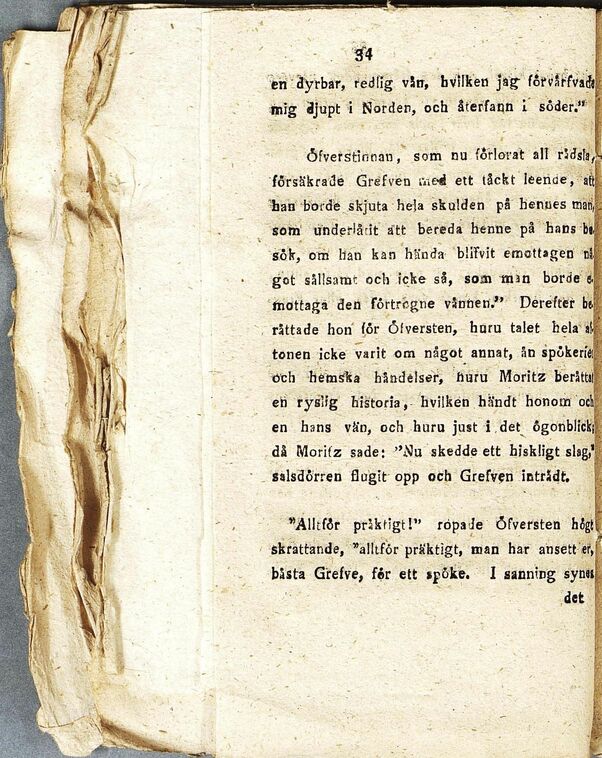 34
en dyrbar, redlig vån, hvilken jag förvärfvade
mig djupt i Norden, och återfann i söder."
Öfverstinnan, som nu förlorat all rådsla,
försäkrade Grefven med ett tåckt leende, att
han borde skjuta hela skulden på hennes man,
som underlåtit att bereda henne på hans be
sök, om han kan hånda blifvit emottagen nå
got sållsamt och icke så, som man borde e
mottaga den förtrogne vånnen." Derefter be
råttade hon för Öfversten, huru talet hela af
tonen icke varit om något annat, ån spökerier
och hemska håndelser, huru Moritz beråttat
en ryslig historia, hvilken håndt honom och
en hans vän, och huru just i det ögonblick,
då Moritz sade: "Nu skedde ett hiskligt slag,"
salsdörren flugit opp och Grefven intrådt.
"Alltför pråktigt!" ropade Öfversten högt
skrattande, "alltför pråktigt, man har ansett er,
båsta Grefve, för ett spöke. I sanning synes
det